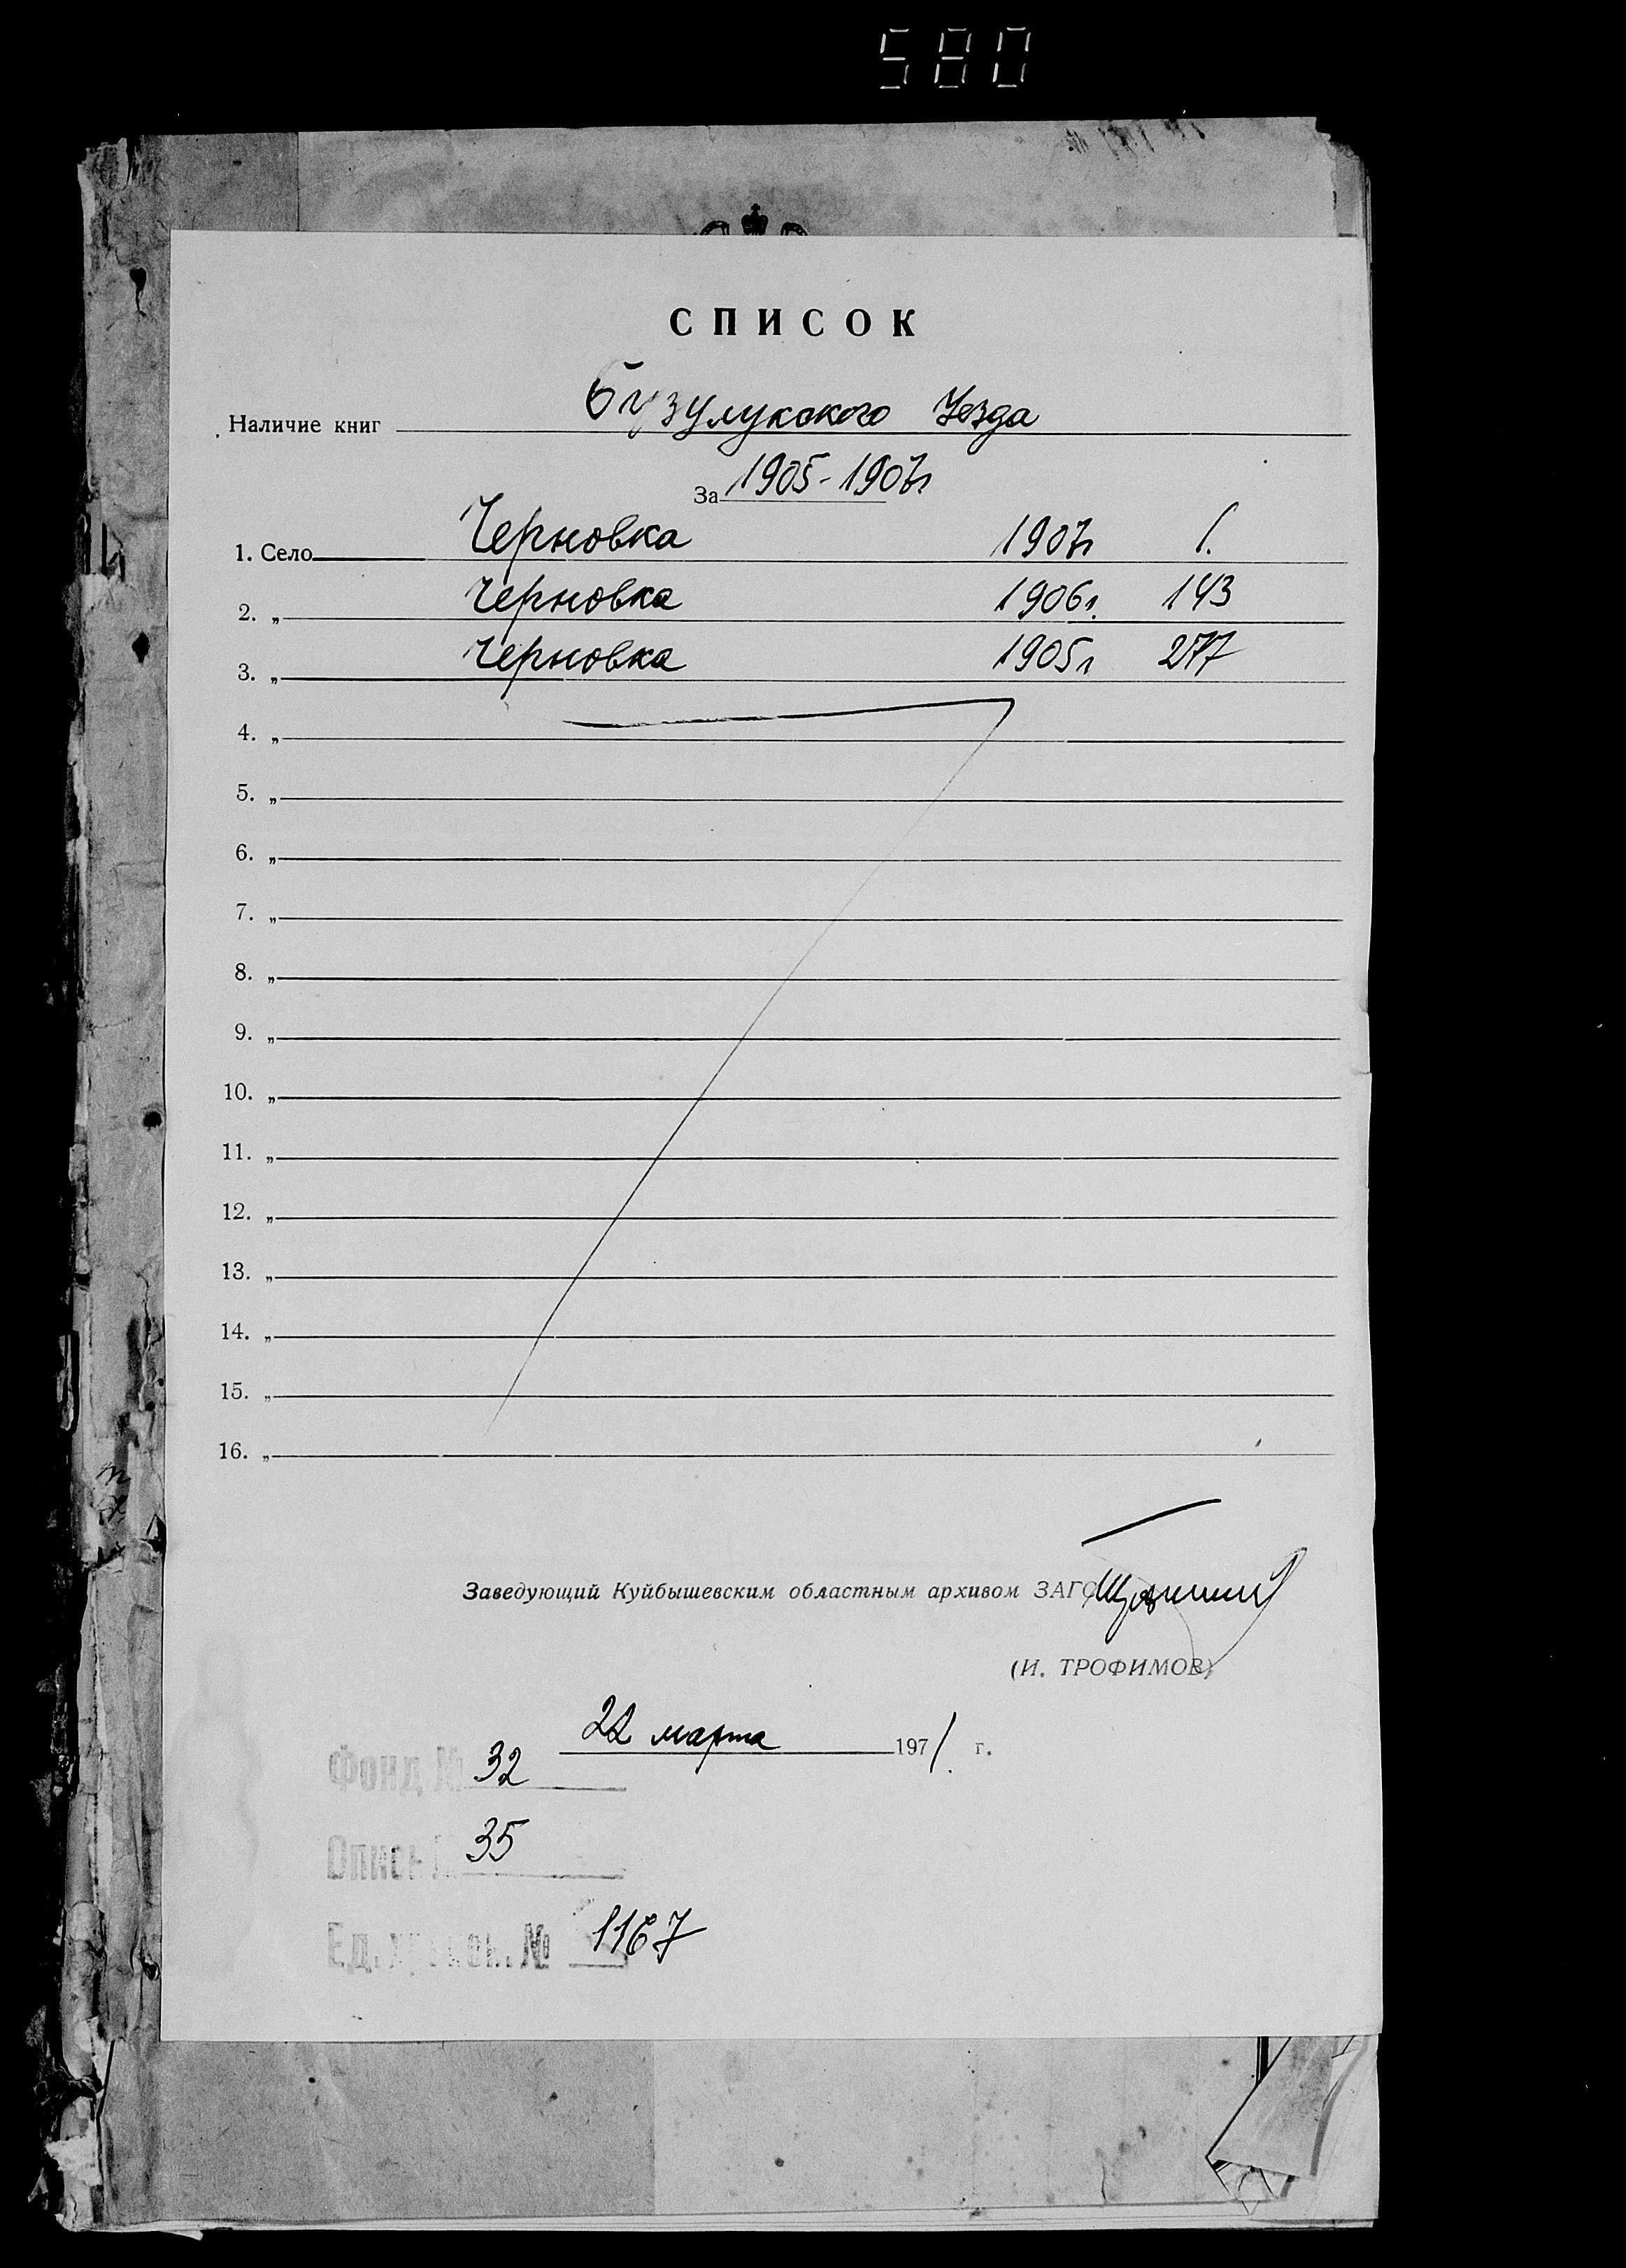 580
СПИСОК
Наличие книг Бузулукского Уезда
За 1905-1907г
1. Село Черновка 1907г 1.
2. „ Черновка 1906г. 143
3. „ Черновка 1905г 277
4. „
5. „
6. „
7. „
8. „
9. „
10. „
11. „
12. „
13. „
14. „
15. „
16. „
Заведующий Куйбышевским областным архивом ЗАГС
(И. ТРОФИМОВ)
22 марта 1971 г.
Фонд № 32
Опись № 35
Ед. хран. № 1167